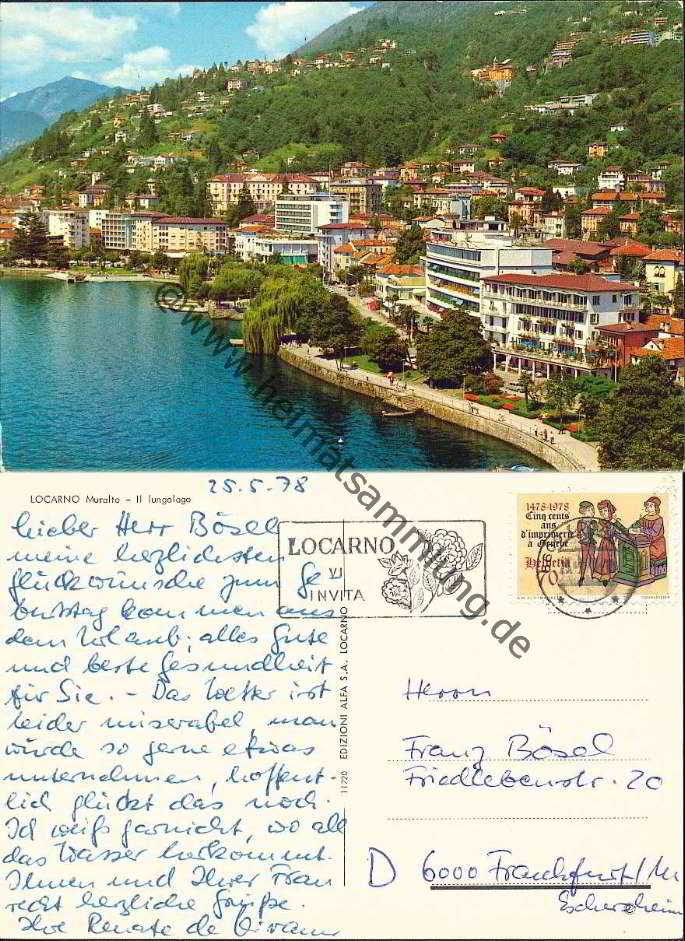 © www.heimatsammlung.de
LOCARNO Muralto – Il lungolago
25.5.78
lieber Herr Bösel
meine herzlichsten
glückwünsche zum Ge
burtstag kommen aus
dem Urlaub; alles Gute
und beste Gesundheit
für Sie. – Das Wetter ist
leider miserabel man
würde so gerne etwas
unternehmen, hoffent-
lich glückt das noch.
Ich weiß garnicht, wo all
das Wasser herkommt.
Ihnen und Ihrer Frau
recht herzliche Grüße.
Ihre Renate de
LOCARNO
VI
INVITA
11220 EDIZIONI ALFA S.A. LOCARNO
1478-1978
Cinq cents
ans
d'imprimerie
à Genève
Helvetia
70
Herrn
Franz Bösel
Friedlebenstr. 20
D 6000 Frankfurt/M
Eschersheim